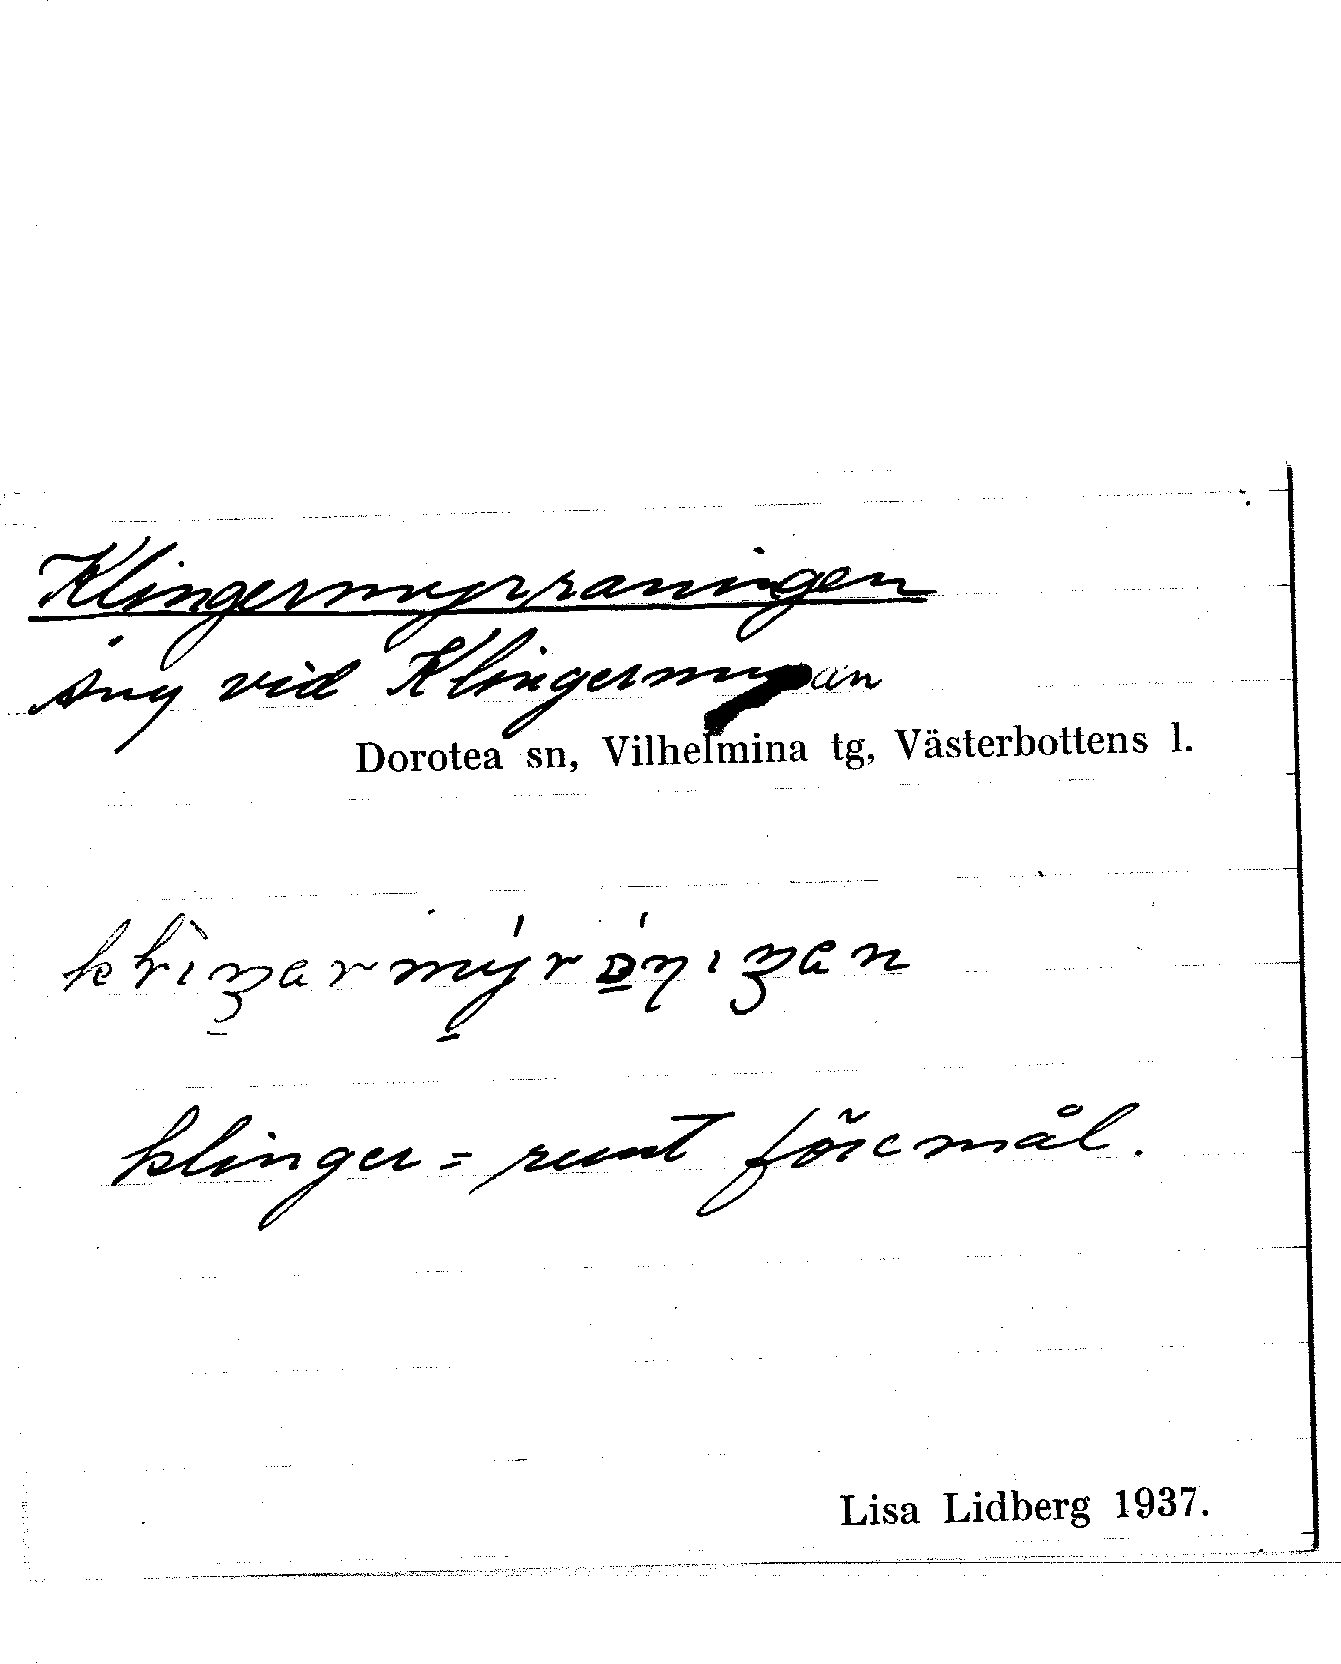 Klingermyrraningen
äng vid Klingermyran
Dorotea sn, Vilhelmina tg, Västerbottens l.
klinger = runt föremål.
Lisa Lidberg 1937.